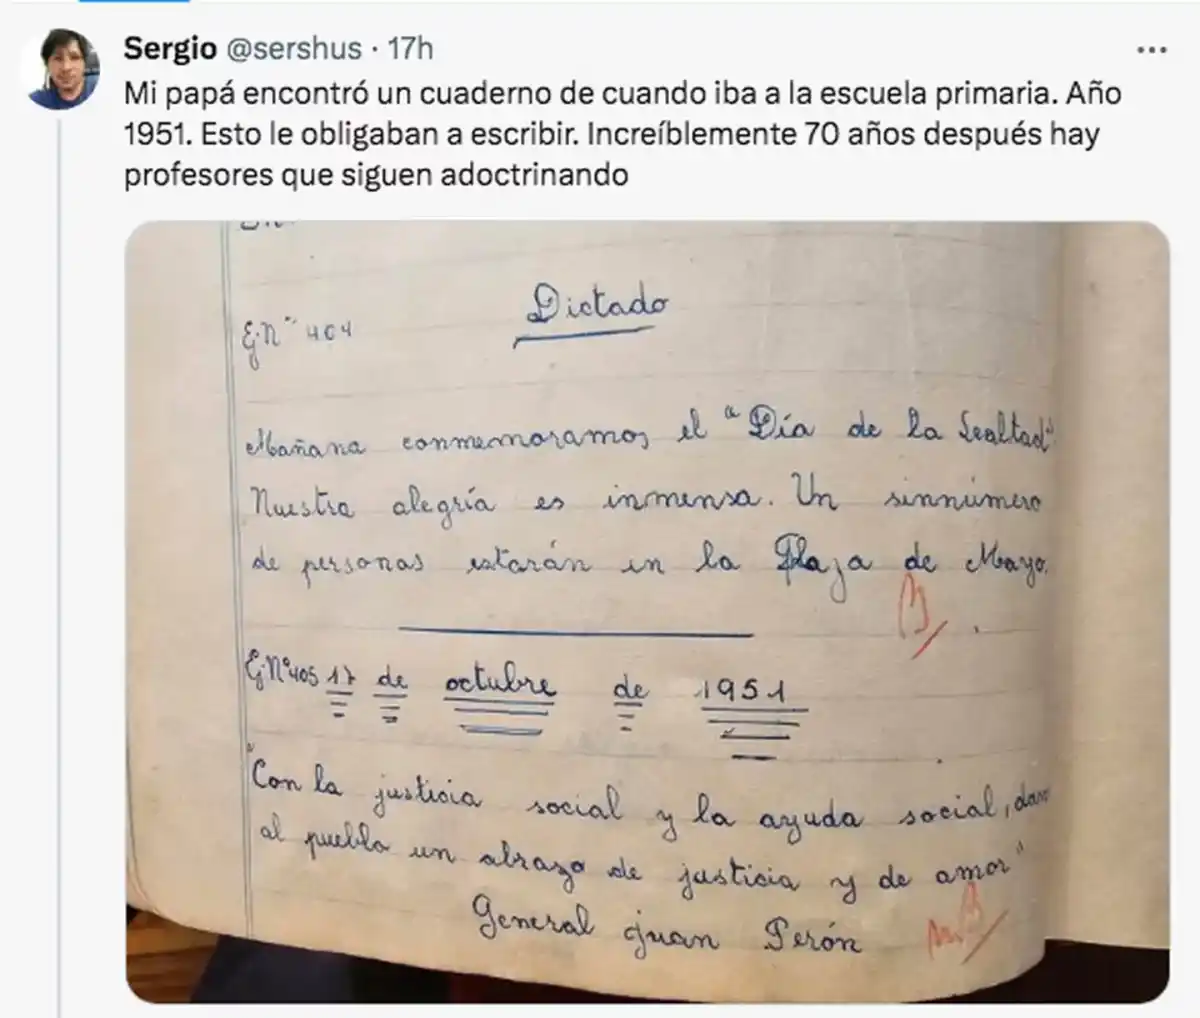 Sergio @sershus · 17h
Mi papá encontró un cuaderno de cuando iba a la escuela primaria. Año
1951. Esto le obligaban a escribir. Increíblemente 70 años después hay
profesores que siguen adoctrinando
Dictado
E.Nº 404
Mañana conmemoramos el "Día de la Lealtad"
Nuestra alegría es inmensa. Un sinnúmero
de personas estarán en la Plaza de Mayo.
B
E.Nº405 17 de octubre de 1951
"Con la justicia social y la ayuda social,
al pueblo un abrazo de justicia y de amor"
General Juan Perón
MB